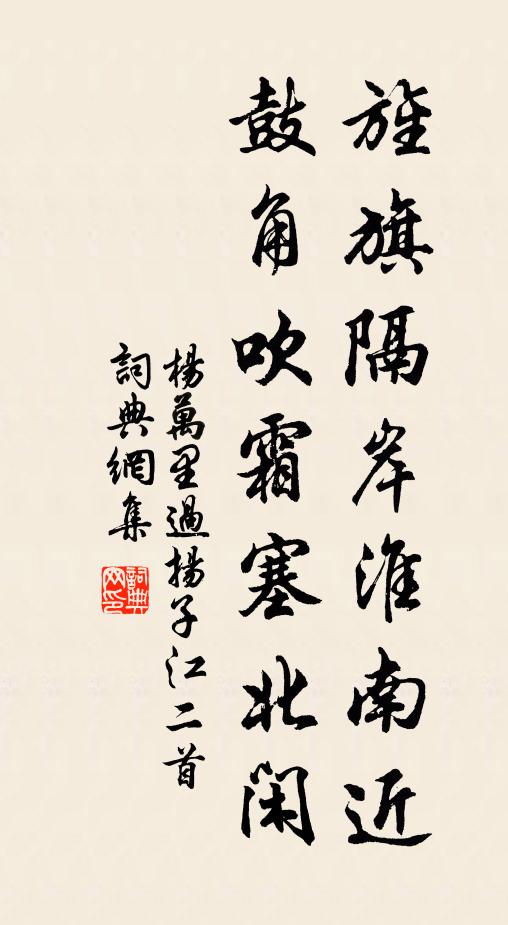 旌旗隔岸淮南近
鼓角吹霜塞北闲
楊萬里過揚子江二首
詞典網集
詞典
网印